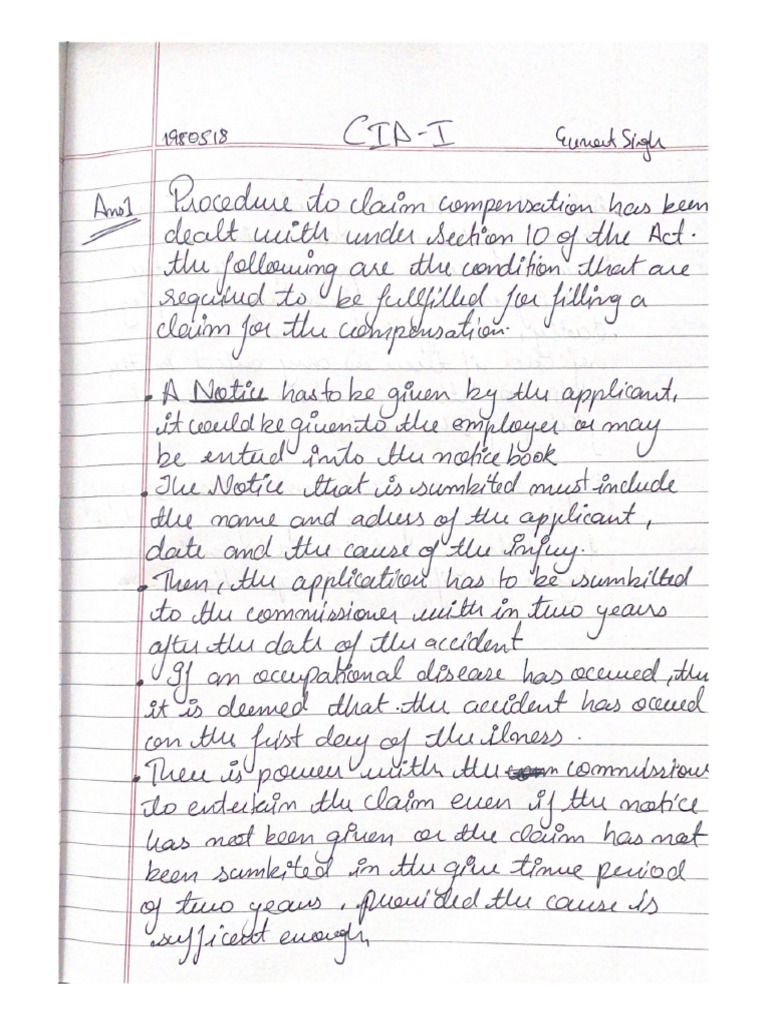 1980518 CIA-I Gurneet Singh
Ans1 Procedure to claim compensation has been
dealt with under Section 10 of the Act.
the following are the condition that are
required to be fullfilled for filling a
claim for the compensation.
• A Notice has to be given by the applicant,
it would be given to the employer or may
be entered into the notice book
• The Notice that is sumbited must include
the name and adress of the applicant,
date and the cause of the injury.
• Then, the application has to be sumbitted
to the commissioner with in two years
after the date of the accident
• If an occupational disease has occured, the
it is deemed that the accident has occured
on the first day of the ilness.
• There is power with the commission
to entertain the claim even if the notice
has not been given or the claim has not
been sumbited in the give time period
of two years, provided the cause is
sufficent enough,